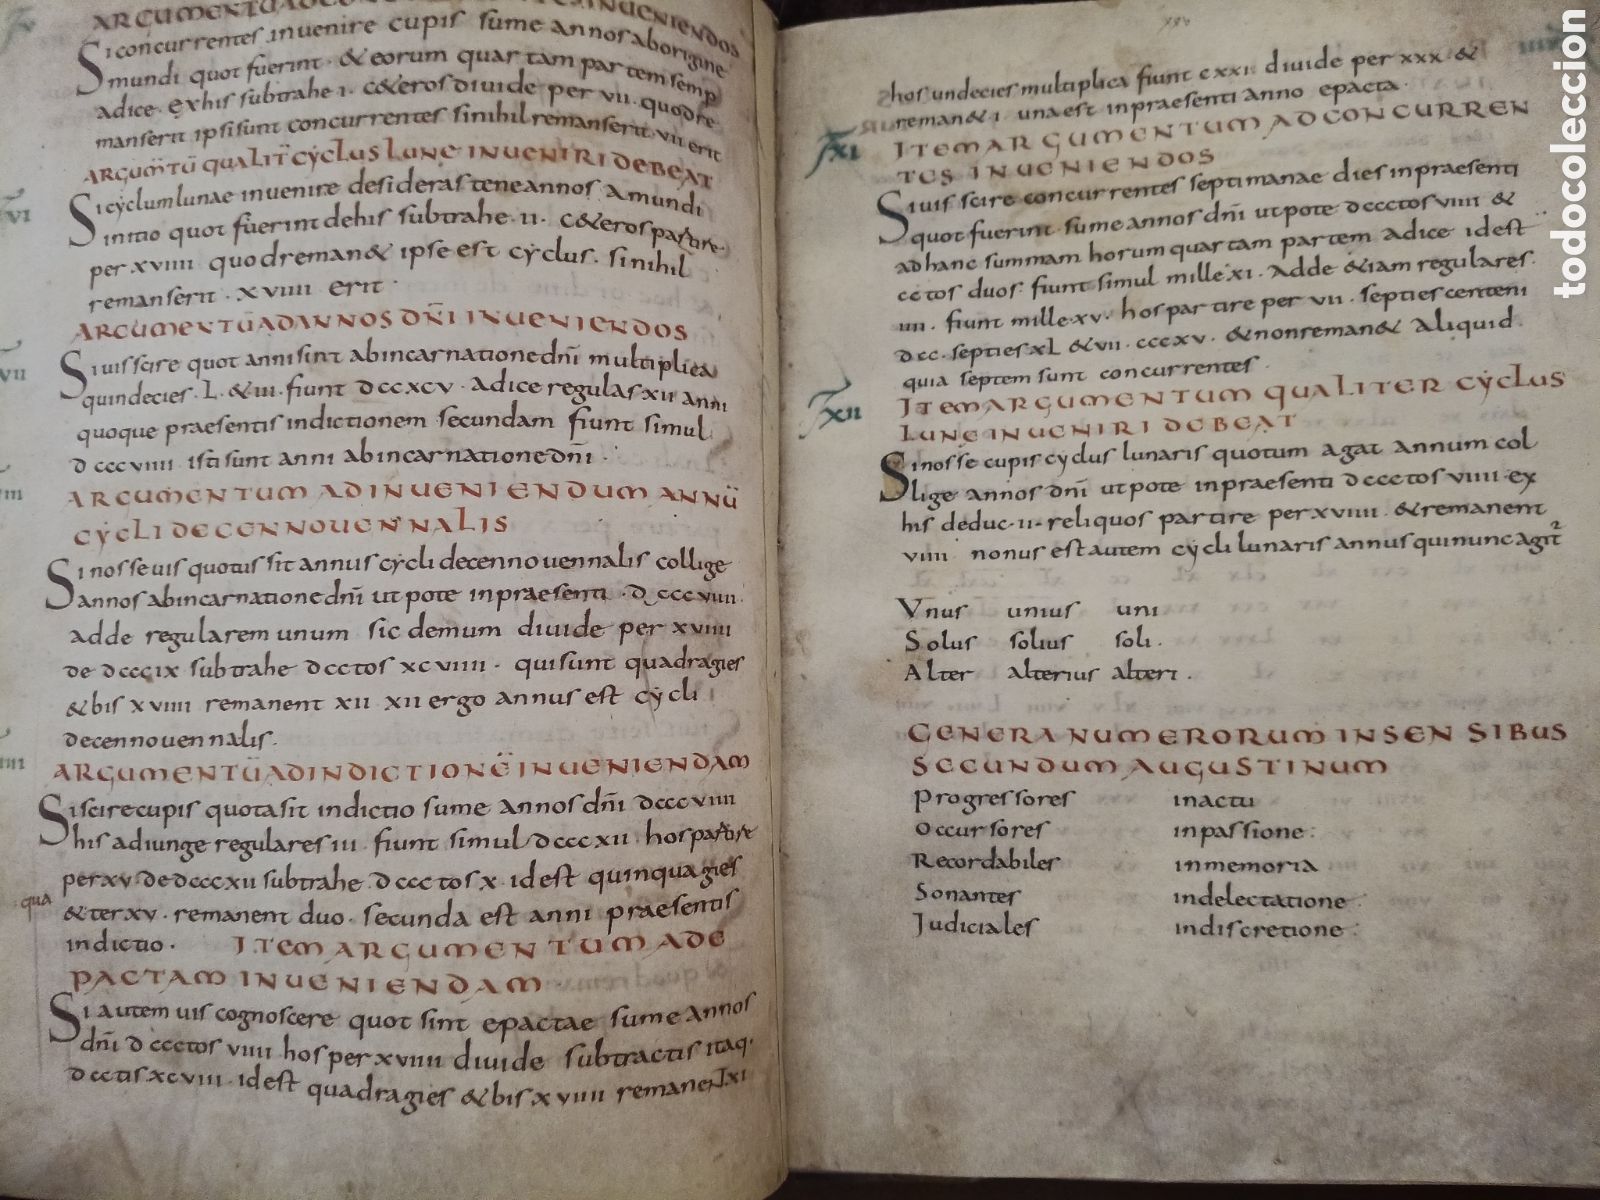 ARGUMENTU AD CONCURRENTES INUENIENDOS
Si concurrentes inuenire cupis sume annos ab origine
mundi quot fuerint · & eorum quartam partem semp
adice · ex his subtrahe · i · c&eros diuide per vii · quod re
manserit ipsi sunt concurrentes si nihil remanserit vii erit
ARGUMTU QUALIT CYCLUS LUNE INUENIRI DEBEAT
VI
Si cyclum lunae inuenire desideras tene annos a mundi
initio quot fuerint de his subtrahe · ii · c&eros partire
per xviiii quod reman& ipse est cyclus · si nihil
remanserit · xviiii erit ·
ARGUMENTU AD ANNOS DNI INUENIENDOS
VII
Si uis scire quot anni sint ab incarnatione dni multiplica
quindecies · L · & iii · fiunt dccxcv · adice regulas xii anni
quoque praesentis indictionem secundam fiunt simul
dcccviiii isti sunt anni ab incarnatione dni ·
ARGUMENTUM AD INUENIENDUM ANNU
CYCLI DECENNOUENNALIS
Si nosse uis quotus sit annus cycli decennouennalis collige
annos ab incarnatione dni ut pote in praesenti · dcccviiii ·
adde regularem unum sic demum diuide per xviiii
de dcccix subtrahe dcctos xcviiii · qui sunt quadragies
& bis xviiii remanent xii xii ergo annus est cycli
decennouennalis ·
ARGUMENTU AD INDICTIONE INUENIENDAM
Si scire cupis quota sit indictio sume annos dni dcccviiii
his adiunge regulares iii fiunt simul dcccxii hos partire
per xv · de dcccxii subtrahe · dccctos x · id est quinquagies
qua
& ter xv · remanent duo · secunda est anni praesentis
indictio · ITEM ARGUMENTUM AD E
PACTAM INUENIENDAM
Si autem uis cognoscere quot sint epactae sume annos
dni dccctos viiii hos per xviiii diuide subtractis itaq·
dcctis xcviii · id est quadragies & bis xviiii remanent xi
hos undecies multiplica fiunt cxxi · diuide per xxx · &
reman& i · una est in praesenti anno epacta ·
XI
ITEM ARGUMENTUM AD CONCURREN
TES INUENIENDOS
Si uis scire concurrentes septimanae dies in praesenti
quot fuerint · sume annos dni ut pote dccctos viiii &
ad hanc summam horum quartam partem adice id est
cctos duos · fiunt simul mille xi · Adde & iam regulares
iiii · fiunt mille xv · hos partire per vii · septies centeni
dcc · septies xL & vii · cccxv · & non reman& Aliquid
quia septem sunt concurrentes ·
XII
ITEM ARGUMENTUM QUALITER CYCLUS
LUNE INUENIRI DEBEAT
Si nosse cupis cyclus lunaris quotum agat annum col
lige annos dni ut pote in praesenti dccctos viiii · ex
his deduc · ii · reliquos partire per xviiii · & remanent
viiii nonus est autem cycli lunaris annus qui nunc agit2
Vnus unius uni
Solus solius soli ·
Alter alterius alteri ·
GENERA NUMERORUM IN SENSIBUS
SECUNDUM AUGUSTINUM
Progressores in actu
Occursores in passione :
Recordabiles in memoria
Sonantes in delectatione :
Judiciales in discretione :
todocoleccion